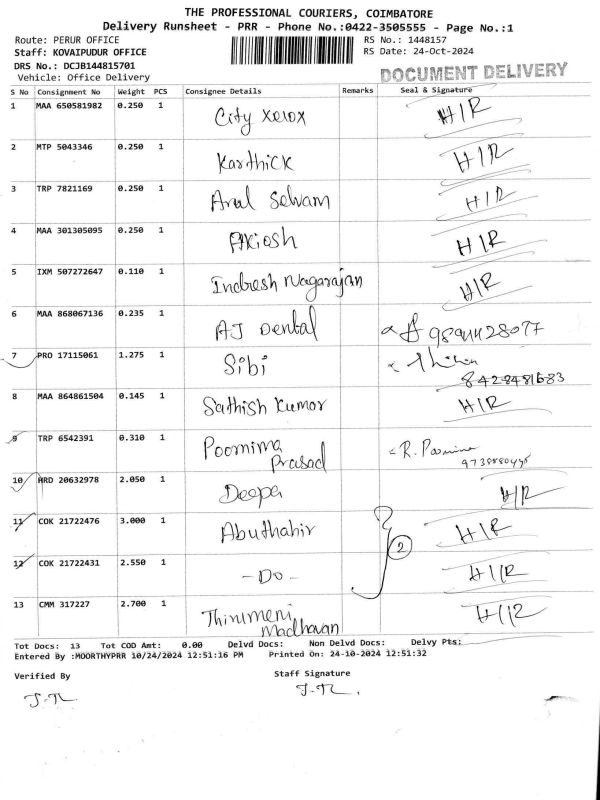 THE PROFESSIONAL COURIERS, COIMBATORE
Delivery Runsheet - PRR - Phone No.:0422-3505555 - Page No.:1
Route: PERUR OFFICE RS No.: 1448157
Staff: KOVAIPUDUR OFFICE RS Date: 24-Oct-2024
DRS No.: DCJB144815701
Vehicle: Office Delivery DOCUMENT DELIVERY
S No Consignment No Weight PCS Consignee Details Remarks Seal & Signature
1 MAA 650581982 0.250 1 City Xerox H/R
2 MTP 5043346 0.250 1 Karthick H/R
3 TRP 7821169 0.250 1 Arul Selvam H/R
4 MAA 301305095 0.250 1 H/R
5 IXM 507272647 0.110 1 Indresh Nagarajan H/R
6 MAA 868067136 0.235 1 AJ Dental
7 PRO 17115061 1.275 1 Sibi
8428481683
8 MAA 864861504 0.145 1 Sathish Kumar H/R
9 TRP 6542391 0.310 1 Poornima Prasad
10 HRD 20632978 2.050 1 Deepa H/R
11 COK 21722476 3.000 1 Abuthahir H/R
2
12 COK 21722431 2.550 1 - Do - H/R
13 CMM 317227 2.700 1 Thirumeni Madhavan H/R
Tot Docs: 13 Tot COD Amt: 0.00 Delvd Docs: Non Delvd Docs: Delvy Pts:
Entered By :MOORTHYPRR 10/24/2024 12:51:16 PM Printed On: 24-10-2024 12:51:32
Verified By Staff Signature